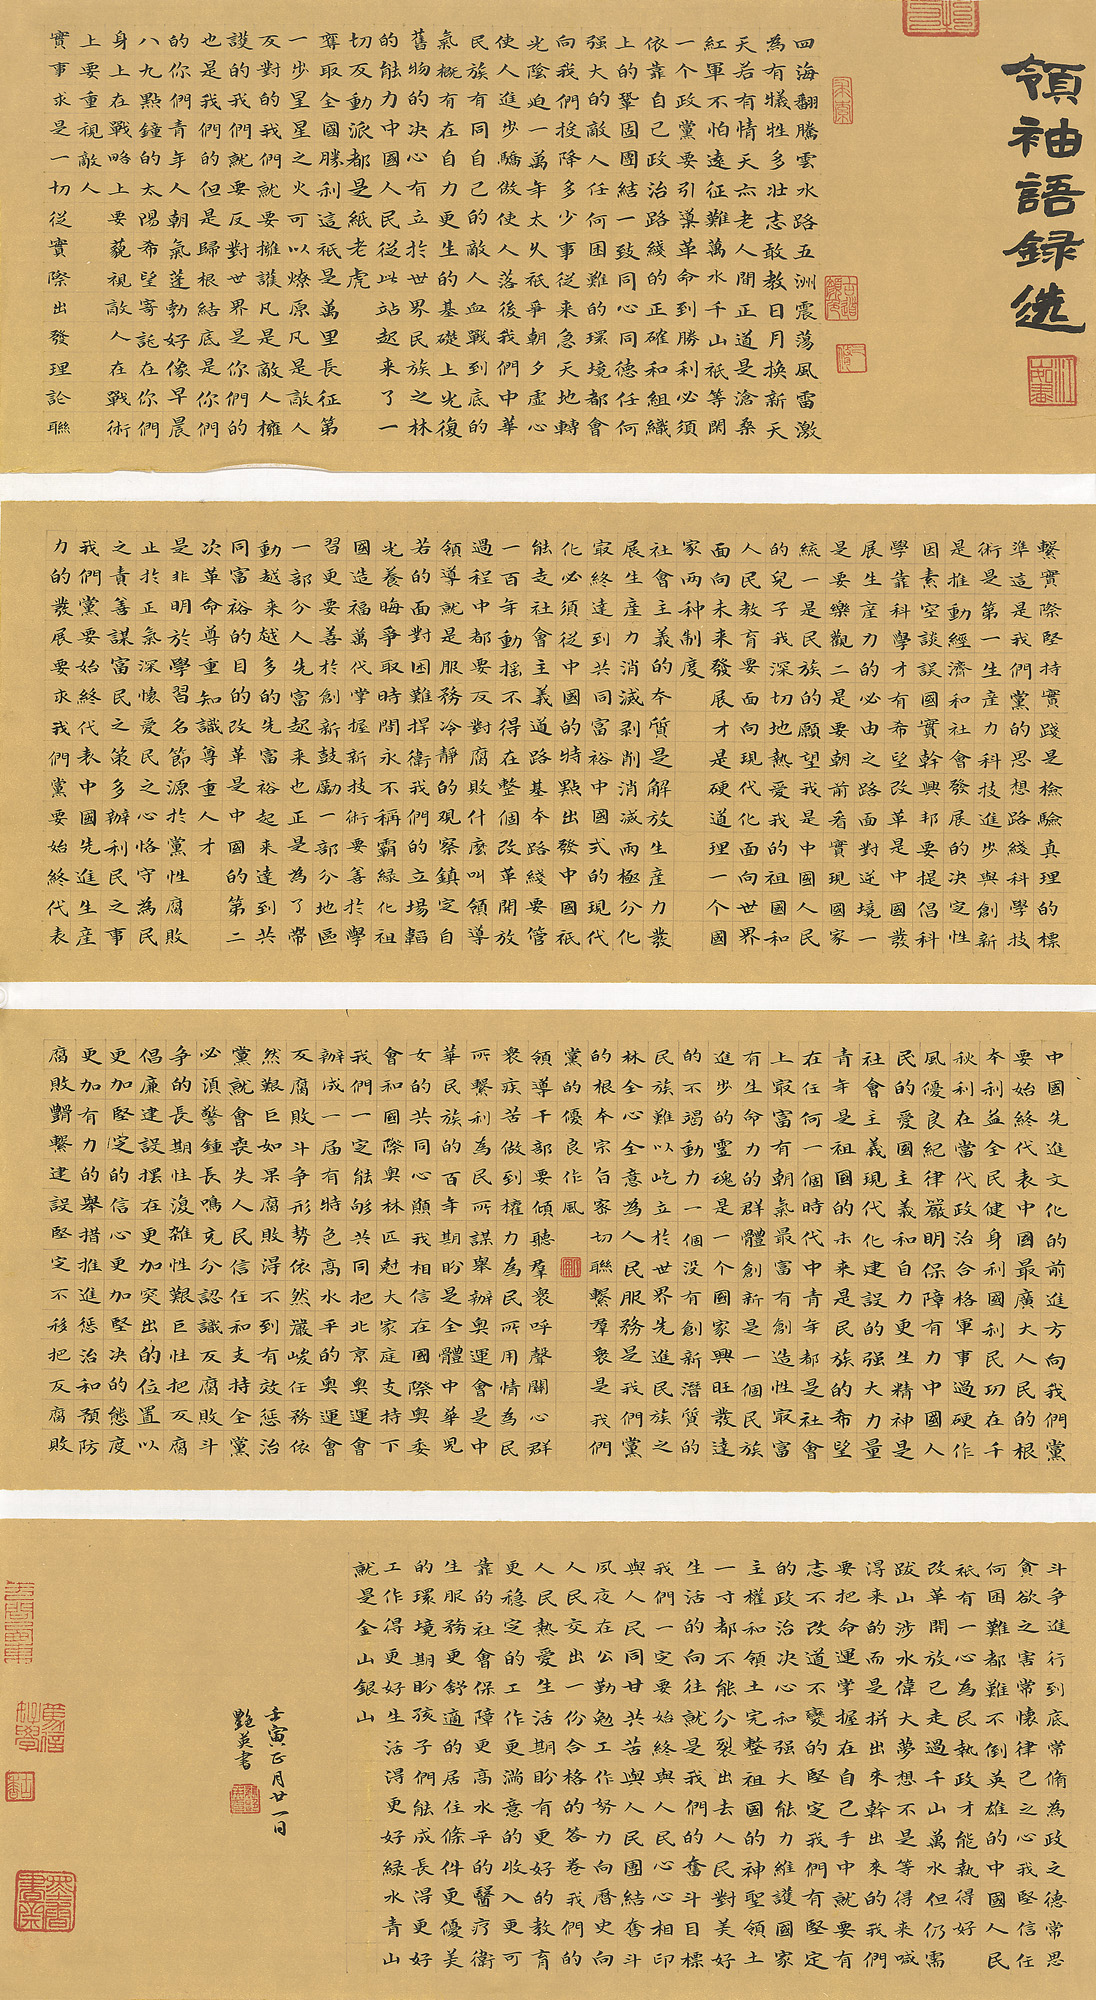 領袖語録選
四海翻騰雲水路五洲震蕩風雷激
為有犧牲多壯志敢教日月換新天
天若有情天亦老人間正道是滄桑
紅軍不怕遠征難萬水千山祇等閑
一个政黨要引導革命到勝利必須
依靠自己政治路綫的正確和組織
上的鞏固團結一致同心同德任何
强大的敵人任何困難的環境都會
向我們投降多少事從来急天地轉
光陰迫一萬年太久祇爭朝夕虛心
使人進步驕傲使人落後我們中華
民族有同自己的敵人血戰到底的
氣概有在自力更生的基礎上光復
舊物的决心有立於世界民族之林
的能力中國人民從此站起来了一
切反動派都是紙老虎
奪取全國勝利這祇是萬里長征第
一步星星之火可以燎原凡是敵人
反對的我們就要擁護凡是敵人擁
護的我們就要反對世界是你們的
也是我們的但是歸根結底是你們
的你們青年人朝氣蓬勃好像早晨
八九點鐘的太陽希望寄託在你們
身上在戰略上要藐視敵人在戰術
上要重視敵人
實事求是一切從實際出發理論聯
繫實際堅持實踐是檢驗真理的標
準這是我們黨的思想路綫科學技
術是第一生産力科技進步與創新
是推動經濟和社會發展的决定性
因素空談誤國實幹興邦要提倡科
學靠科學才有希望改革是中國發
展生産力的必由之路面對逆境一
是要樂觀二是要朝前看實現國家
統一是民族的願望我是中國人民
的兒子我深切地熱愛我的祖國和
人民教育要面向現代化面向世界
面向未来發展才是硬道理一个國
家兩种制度
社會主義的本質是解放生産力發
展生産力消滅剥削消滅兩極分化
最終達到共同富裕中國式的現代
化必須從中國的特點出發中國祇
能走社會主義道路基本路綫要管
一百年動摇不得在整個改革開放
過程中都要反對腐敗什麽叫領導
領導就是服務冷靜的觀察鎮定自
若的面對困難捍衛我們的立場韜
光養晦爭取時間永不稱霸緑化祖
國造福萬代掌握新技術要善於學
習更要善於創新鼓勵一部分地區
一部分人先富起来也正是為了帶
動越来越多的先富裕起来達到共
同富裕的目的改革是中國的第二
次革命尊重知識尊重人才
是非明於學習名節源於黨性腐敗
止於正氣深懷愛民之心恪守為民
之責善謀富民之策多辦利民之事
我們黨要始終代表中國先進生産
力的發展要求我們黨要始終代表
中國先進文化的前進方向我們黨
要始終代表中國最廣大人民的根
本利益全民健身利國利民功在千
秋利在當代政治合格軍事過硬作
風優良紀律嚴明保障有力中國人
民的愛國主義和自力更生精神是
社會主義現代化建設的强大力量
青年是祖國的未来是民族的希望
在任何一個時代中青年都是社會
上最富有朝氣最富有創造性最富
有生命力的群體創新是一個民族
進步的靈魂是一个國家興旺發達
的不竭動力一個没有創新潛質的
民族難以屹立於世界先進民族之
林全心全意為人民服務是我們黨
的根本宗旨密切聯繫羣衆是我們
黨的優良作風
領導干部要傾聽羣衆呼聲關心群
衆疾苦做到權力為民所用情為民
所繫利為民所謀舉辦奥運會是中
華民族的百年期盼是全體中華兒
女的共同心願我相信在國際奥委
會和國際奥林匹尅大家庭支持下
我們一定能够共同把北京奥運會
辦成一届有特色高水平的奥運會
反腐敗斗争形勢依然嚴峻任務依
然艱巨如果腐敗得不到有效懲治
黨就會喪失人民信任和支持全黨
必湏警鍾長鳴充分認識反腐敗斗
争的長期性復雜性艱巨性把反腐
倡廉建設擺在更加突出的位置以
更加堅定的信心更加堅决的態度
更加有力的舉措推進懲治和預防
腐敗體繫建設堅定不移把反腐敗
斗争進行到底常脩為政之德常思
貪欲之害常懷律己之心我堅信任
何困難都難不倒英雄的中國人民
祇有一心為民執政才能執得好
改革開放已走過千山萬水但仍需
跋山涉水偉大夢想不是等得来喊
得来的而是拼出来幹出来的我們
要把命運掌握在自己手中就要有
志不改道不變的堅定我們有堅定
的政治决心和强大能力維護國家
主權和領土完整祖國的神聖領土
一寸都不能分裂出去人民對美好
生活的向往就是我們的奮斗目標
我們一定要始終與人民心心相印
與人民同甘共苦與人民團結奮斗
夙夜在公勤勉工作努力向曆史向
人民交出一份合格的答卷我們的
人民熱愛生活期盼有更好的教育
更穩定的工作更滿意的收入更可
靠的社會保障更高水平的醫疗衛
生服務更舒適的居住條件更優美
的環境期盼孩子們能成長得更好
工作得更好生活得更好緑水青山
就是金山銀山
壬寅正月廿一日
艷英書